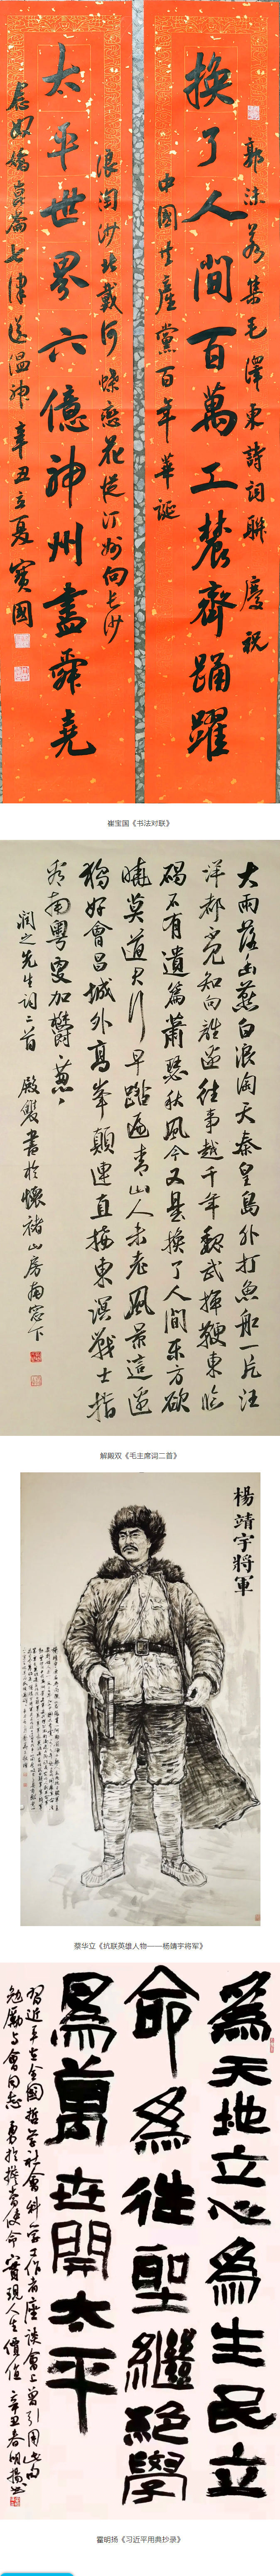 換了人間百萬工農齊踴躍
郭沫若集毛澤東詩詞聯 慶祝
中國共產黨百年華誕
太平世界六億神州盡舜堯
浪淘沙北戴河 蝶戀花從汀州向長沙
念奴嬌崑崙七律送瘟神 辛丑立夏 寶國
崔宝国《书法对联》
大雨落幽燕白浪滔天秦皇島外打魚船一片汪
洋都不見知向誰邊往事越千年魏武揮鞭東臨
碣石有遺篇蕭瑟秋風今又是換了人間東方欲
曉莫道君行早踏遍青山人未老風景這邊
獨好會昌城外高峯顛連直接東溟戰士指
看南粵更加鬱蔥蔥
潤之先生詞二首 殿雙書於懷褚山房南窗下
解殿双《毛主席词二首》
楊靖宇將軍
蔡华立《抗联英雄人物——杨靖宇将军》
為天地立心為生民立
命為往聖繼絕學
為萬世開太平
習近平在全國哲學社會科學工作者座談會上曾引用此句
勉勵與會同志勇於擔當使命實現人生價值 辛丑春明揚書
霍明扬《习近平用典抄录》